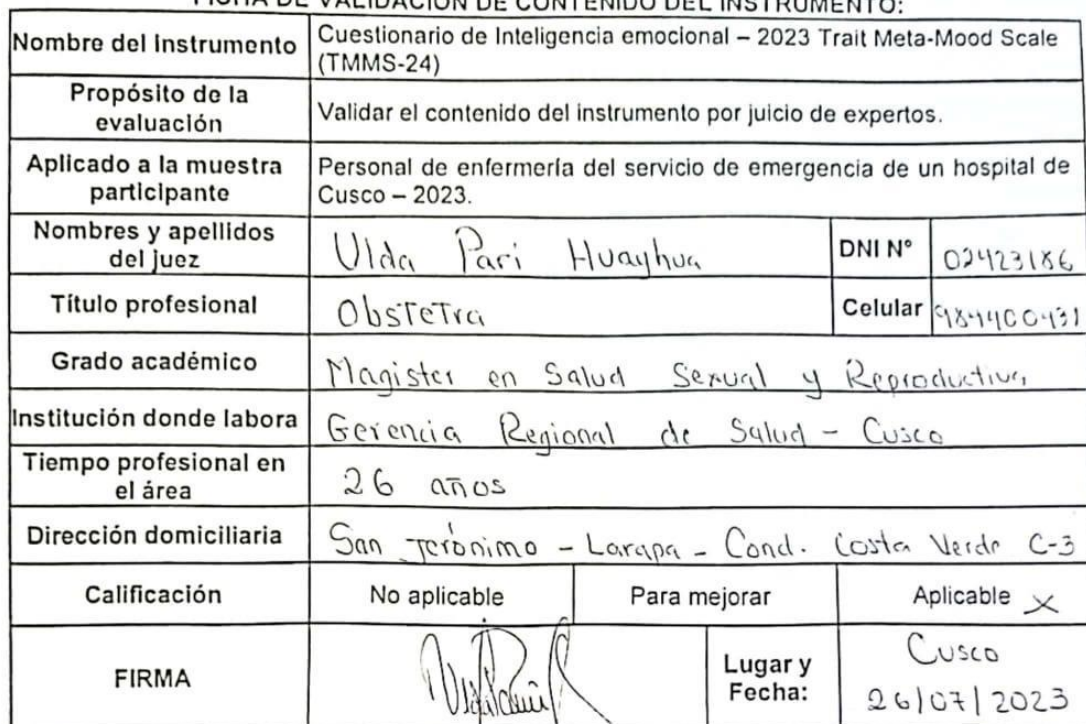 FICHA DE VALIDACIÓN DE CONTENIDO DEL INSTRUMENTO:
Nombre del Instrumento
Cuestionario de Inteligencia emocional – 2023 Trait Meta-Mood Scale
(TMMS-24)
Propósito de la
evaluación
Validar el contenido del instrumento por juicio de expertos.
Aplicado a la muestra
participante
Personal de enfermería del servicio de emergencia de un hospital de
Cusco – 2023.
Nombres y apellidos
del juez
Ulda Pari Huayhua
DNI N°
02423186
Título profesional
Obstetra
Celular
984400431
Grado académico
Magister en Salud Sexual y Reproductiva
Institución donde labora
Gerencia Regional de Salud – Cusco
Tiempo profesional en
el área
26 años
Dirección domiciliaria
San Jerónimo – Larapa – Cond. Costa Verde C-3
Calificación
No aplicable
Para mejorar
Aplicable X
FIRMA
Lugar y
Fecha:
Cusco
26/07/2023